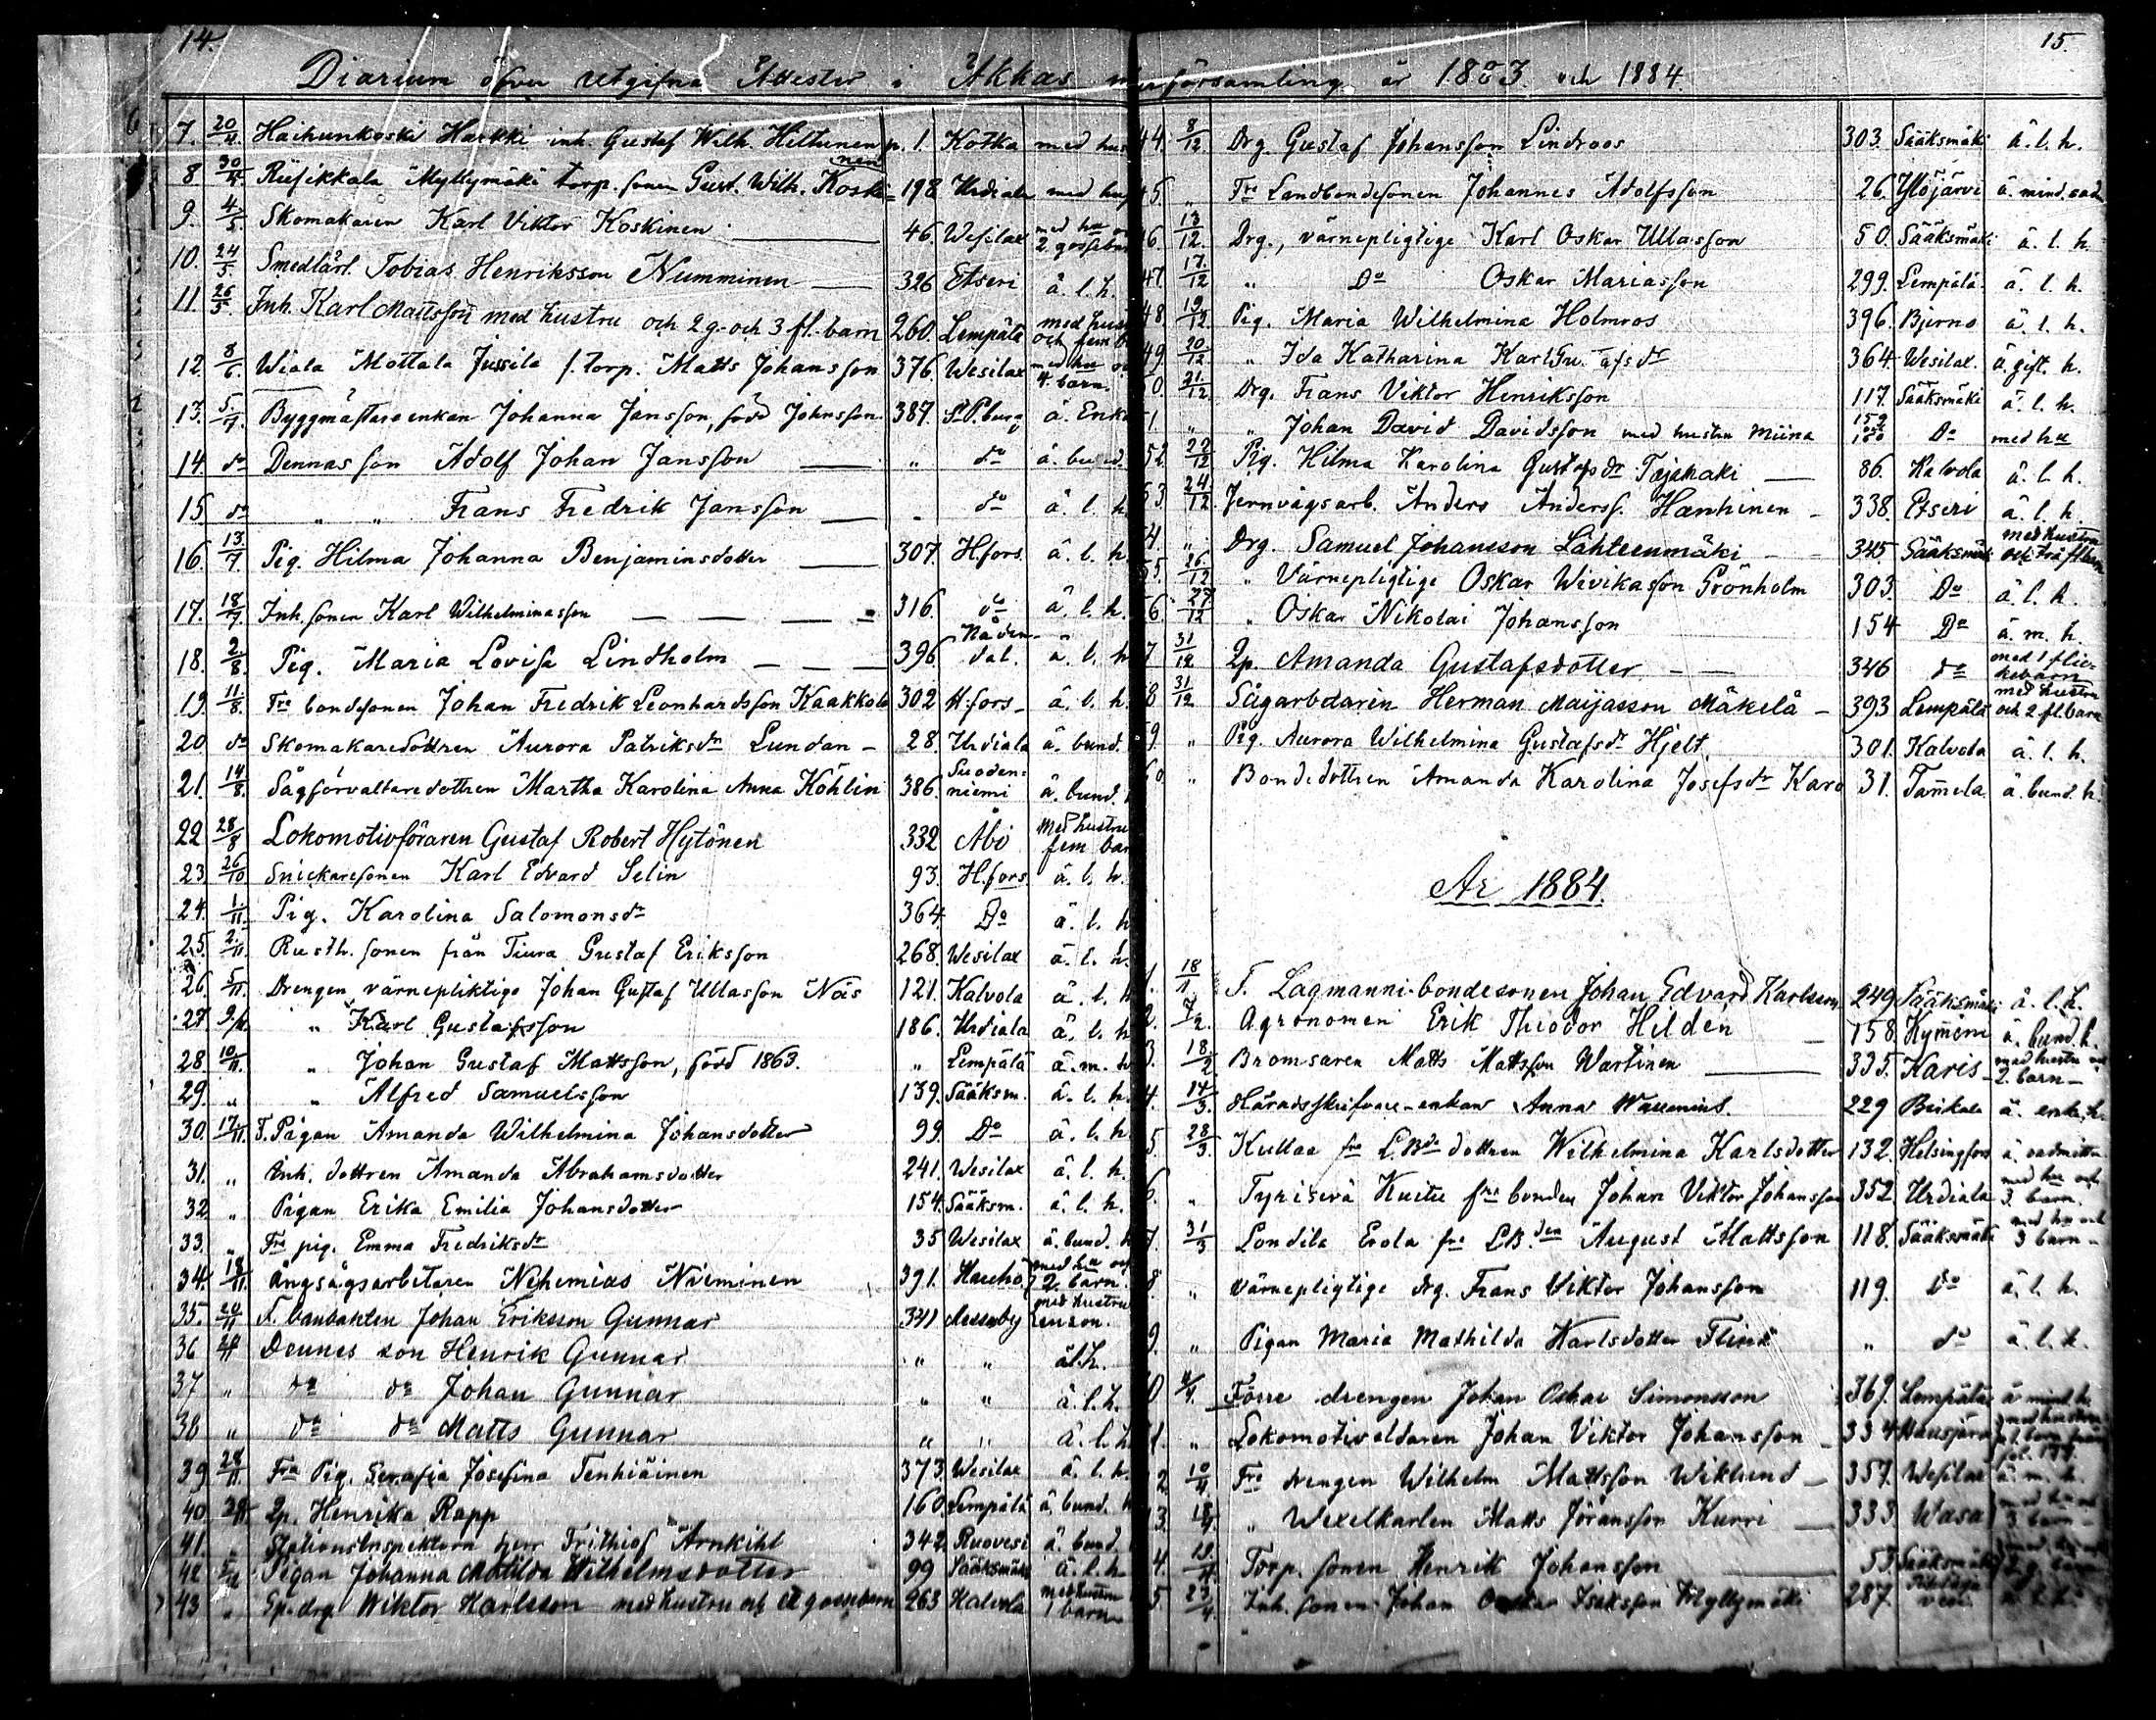 14.
15.
Diarium öfver utgifna Attester i Akkas församling år 1883. och 1884.
7. 20/4. Haihunkoski Harkki inh. Gustaf Wilh. Heltunen p. 1. Kotka med hus
8 30/4. Riisikkala Myllymäki torp. sonen Gust. Wilh. Koskinen 198 Urdiala med hus
9. 4/5. Skomakaren Karl Viktor Koskinen 46. Wesilax med hu o 2 gossebarn
10. 24/5 Smedlärl. Tobias Henriksson Numminen 326 Etseri ä. l. h.
11. 26/5. Inh. Karl Mattsson med hustru och 2 g.- och 3 fl.-barn 260. Lempälä med hust och fem b
12. 8/6. Wiala Mottala Jussila f. torp. Matts Johansson 376. Wesilax med hu o 4. barn.
13. 5/7. Byggmästare enkan Johanna Jansson, född Johnsson 387. St P.burg ä. Enka
14. do Dennas son Adolf Johan Jansson " do ä. bund.
15 do " " Frans Fredrik Jansson " do ä. l. h
16. 13/7 Pig. Hilma Johanna Benjaminsdotter 307. H.fors. ä. l. h
17. 18/7. Inh. sonen Karl Wilhelminasson 316. do ä. l. h.
18. 2/8. Pig. Maria Lovisa Lindholm 396. Nådendal. ä. l. h
19. 11/8. Fre bondesonen Johan Fredrik Leonhardsson Kaakkola 302 H.fors ä. l. h.
20. do Skomakaredottren Aurora Patriksdr Lundan 28. Urdiala ä. bund.
21. 14/8. Sågförvaltaredottren Martha Karolina Anna Köhlin 386. Suodenniemi ä. bund.
22 28/8 Lokomotivföraren Gustaf Robert Hytönen 332 Åbo Med hustru fem bar
23. 26/10 Snickaresonen Karl Edvard Selin 93. H.fors. ä. l. h.
24. 1/11. Pig. Karolina Salomonsdr 364 Do ä. l. h
25. 2/11. Rusth. sonen från Tiura Gustaf Eriksson 268. Wesilax ä. l. h.
26. 5/11. Drengen, värnepliktige Johan Gustaf Ullasson Näs 121. Kalvola ä. l. h
27 9/11. " Karl Gustafsson 186. Urdiala ä. l. h
28. 10/11. " Johan Gustaf Mattsson, född 1863. " Lempälä ä. m. h
29. " " Alfred Samuelsson 139. Sääksm. ä. l. h.
30. 17/11. F. Pigan Amanda Wilhelmina Johansdotter 99. Do ä. l. h.
31. " Inh. dottren Amanda Abrahamsdotter 241. Wesilax ä. l. h.
32 " Pigan Erika Emilia Johansdotter 154. Sääksm. ä. l. h.
33. " Fra pig. Emma Fredriksdr 35 Wesilax ä. bund. h
34. 18/11. Ångsågsarbetaren Nehemias Nieminen 391. Hauho med hu och 2 barn.
35. 20/11 F. banvakten Johan Eriksson Gunnar 341 Messuby med hustru 1 en son.
36 Dennes son Henrik Gunnar " " ä l. h.
37 " do do Johan Gunnar " " ä. l. h.
38 " do do Matts Gunnar " " ä. l. h
39 28/11. Fra Pig. Serafia Josefina Tenhiäinen 373. Wesilax ä. l. h.
40 Qp. Henrika Rapp 160. Lempälä ä. bund. h
41. " Stationsinspektorn herr Frithiof Arnkihl 342 Ruovesi ä. bund.
42 Pigan Johanna Matilda Wilhelmsdotter 99 Sääksmäki ä. l. h
43 " Sp. drg. Wiktor Karlsson med hustru och ett gossebarn 263 Kalvola med hustru 1 barn
44. 8/12. Drg. Gustaf Johansson Lindroos 303. Sääksmäki ä. l. h.
45. " Fre Landbondesonen Johannes Adolfsson 26. Ylöjärvi ä. mind. sadm
46. 13/12. Drg., värnepligtige Karl Oskar Ullasson 50. Sääksmäki ä. l. h.
47. 17/12 " Do Oskar Mariasson 299. Lempälä. ä. l. h.
48. 19/12. Pig. Maria Wilhelmina Holmros 396. Bjerno ä. l. h.
49. 20/12 " Ida Katharina Karl Gu. afsdr 364. Wesilax. ä. gift. h.
50. 21/12. Drg. Frans Viktor Henriksson 117. Sääksmäki ä. l. h.
51. " " Johan David Davidsson med hustru Miina 159 150 Do med hu
52. 22/12 Pig. Hilma Karolina Gustafsdr Tajakaki 86. Kalvola ä. l. h.
53. 24/12. Jernvägsarb. Anders Anderss. Hanhinen 338. Etseri ä. l. h.
54. " Drg. Samuel Johansson Lähteenmäki 345. Sääksmäki med hustru och två fl.barn
55. 26/12 " Värnepligtige Oskar Wivikasson Grönholm 303. Do ä. l. h.
56. 27/12 " Oskar Nikolai Johansson 154 Do ä. m. h.
57 31/12 Qp. Amanda Gustafsdotter 346 do med 1 flickebarn
58 31/12 Sågarbetaren Herman Maijasson Mäkelä 393 Lempälä med hustru och 2 fl.barn
59. " Pig. Aurora Wilhelmina Gustafsdr Hjelt. 301. Kalvola ä. l. h.
60 " Bondedottren Amanda Karolina Josefsdr Karo 31. Tammela ä. bund. h.
År 1884.
1. 18/1. F. Lagmanni-bondesonen Johan Edvard Karlsson 249. Sääksmäki ä. l. h.
2. 7/2. Agronomen Erik Theodor Hildén 158. Kymene ä. bund. h.
3. 18/2 Bromsaren Matts Mattsson Wartinen 335. Karis med hustru och 2. barn
4. 14/3. Häradsskrifvare-enkan Anna Wallenius. 229 Birkala ä. enka, h.
5. 28/3. Kullaa fre L.Bde dottren Wilhelmina Karlsdotter 132. Helsingfors ä. oadmitter
6. " Tyrisevä Kuitu fre bonden Johan Viktor Johansson 352. Urdiala med hu och 3. barn
7. 31/3 Londila Erola fre LB.den August Mattsson 118. Sääksmäki med hu och 3 barn
8 " Värnepligtige drg. Frans Viktor Johansson 119. Do ä. l. h.
9. " Pigan Maria Mathilda Karlsdotter Flink " do ä. l. h.
10 4/4. Förre drengen Johan Oskar Simonsson 369. Lempälä ä mind. h.
11. " Lokomotiveldaren Johan Viktor Johansson 334 Hausjärvi med hustru 1 barn från fol. 177.
12. 10/4. Fre drengen Wilhelm Mattsson Wiklund 357. Wesilax ä. m. h.
13. 18/4. " Wexelkarlen Matts Jöransson Kurri 333 Wasa med hu och 3 barn
14. Torp. sonen Henrik Johansson 53 Sääksmäki
15 23/4. Inh. sonen Johan Oskar Isaksson Myllymäki 287. ä. l. h.